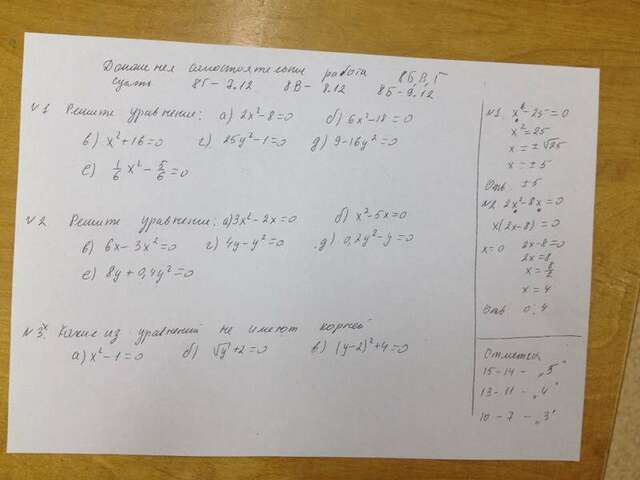 Домашняя самостоятельная работа 8Б,В,Г
Сдать 8Г – 7.12 8В – 8.12 8Б – 9.12
№1 Решите уравнение: а) 2x²-8=0 б) 6x²-18=0
в) x²+16=0 г) 25y²-1=0 д) 9-16y²=0
е) 1/6 x² - 5/6 =0
№2 Решите уравнение: а) 3x²-2x=0 б) x²-5x=0
в) 6x-3x²=0 г) 4y-y²=0 д) 0,2y²-y=0
е) 8y+0,4y²=0
№3.* Какие из уравнений не имеют корней
а) x²-1=0 б) √y+2=0 в) (y-2)²+4=0
№1 x²-25=0
x²=25
x=±√25
x=±5
Отв ±5
№2 2x²-8x=0
x(2x-8)=0
x=0 2x-8=0
2x=8
x=8/2
x=4
Отв 0; 4
Отметка
15-14 - „5"
13-11 - „4"
10-7 - „3"